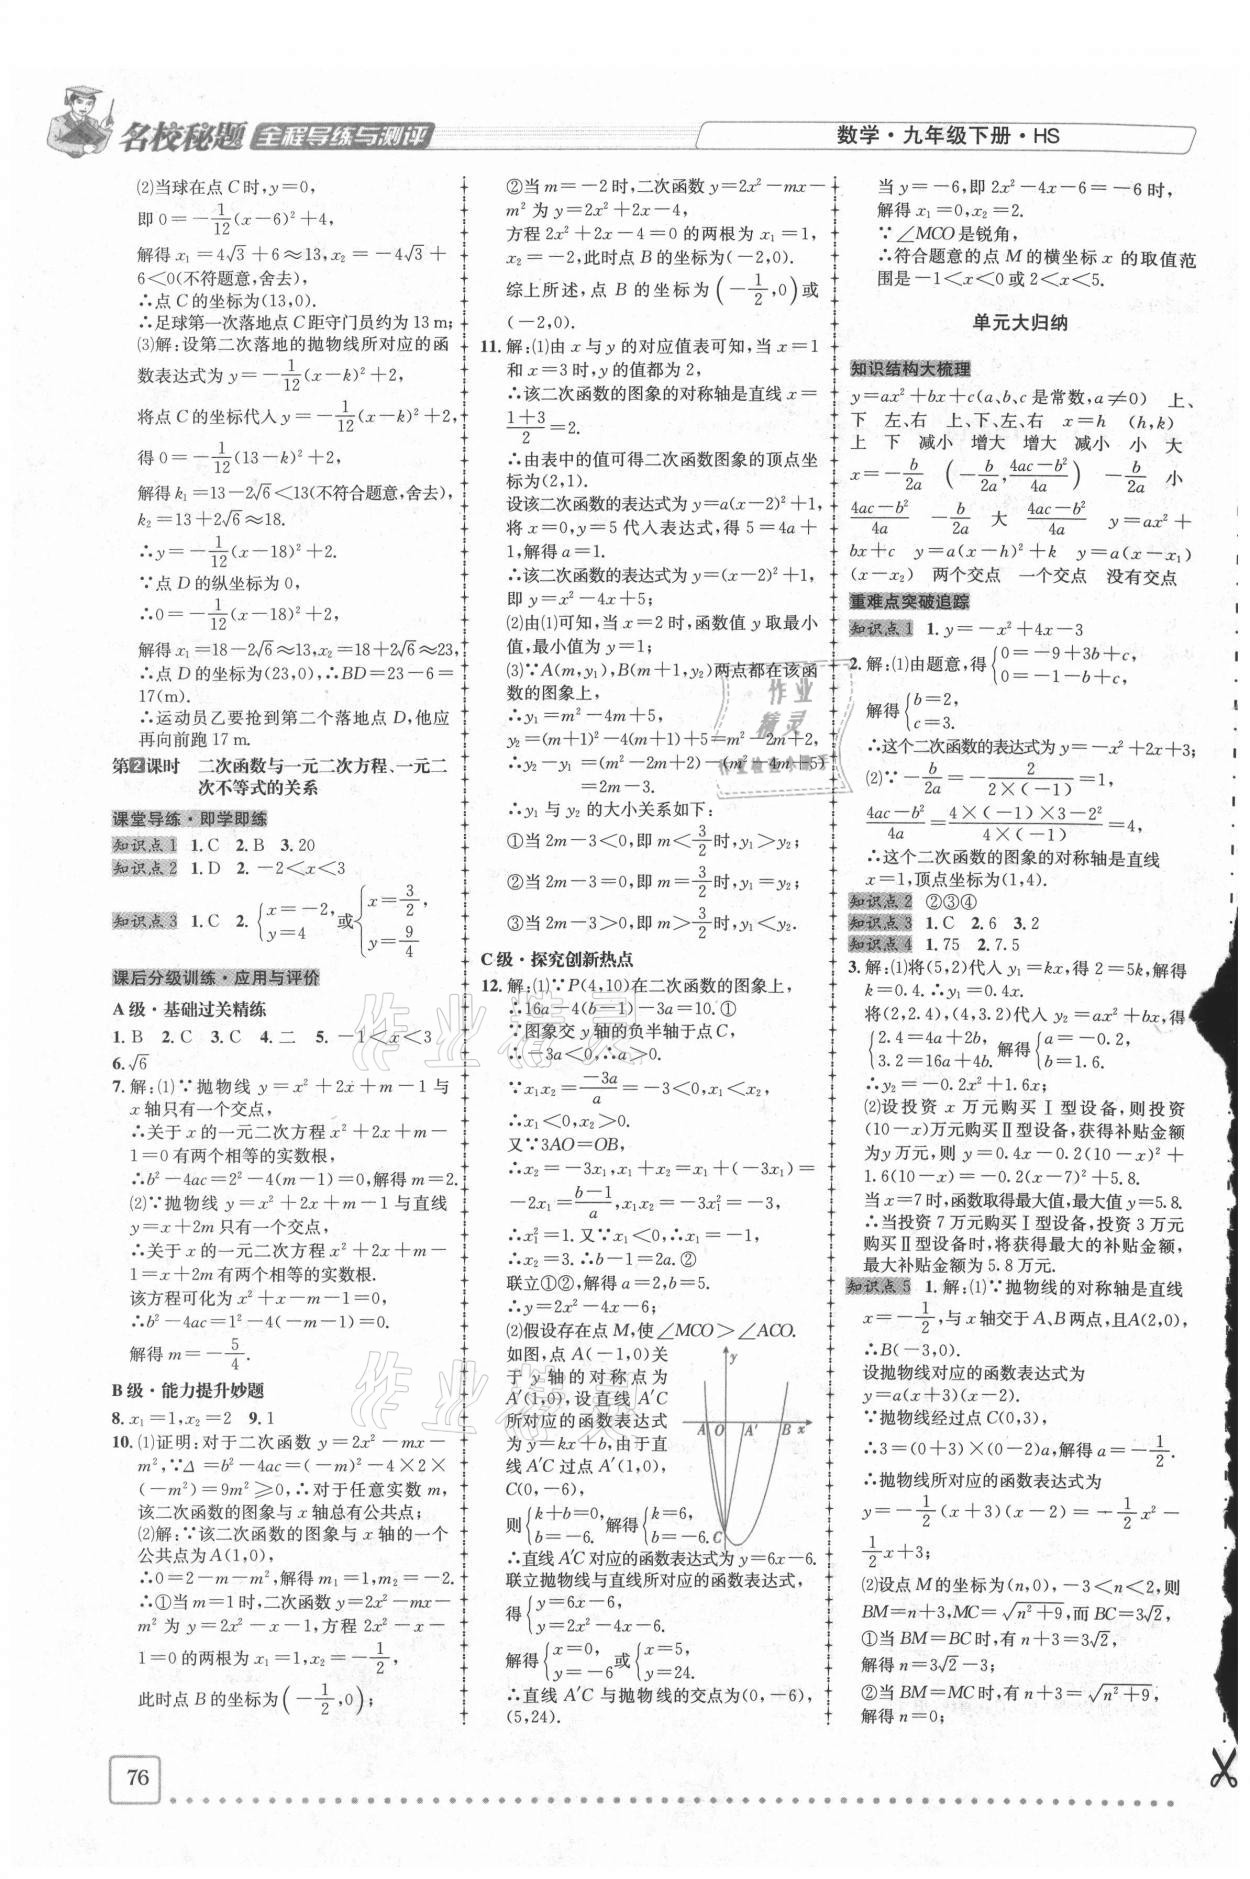 名校秘题 全程导练与测评
数学·九年级下册·HS
(2)当球在点 C 时,y=0,
即 0=-1/12(x-6)²+4,
解得 x₁=4√3+6≈13,x₂=-4√3+
6<0(不符题意,舍去),
∴点 C 的坐标为(13,0).
∴足球第一次落地点 C 距守门员约为 13 m;
(3)解:设第二次落地的抛物线所对应的函
数表达式为 y=-1/12(x-k)²+2,
将点 C 的坐标代人 y=-1/12(x-k)²+2,
得 0=-1/12(13-k)²+2,
解得 k₁=13-2√6<13(不符合题意,舍去),
k₂=13+2√6≈18.
∴y=-1/12(x-18)²+2.
∵点 D 的纵坐标为 0,
∴0=-1/12(x-18)²+2,
解得 x₁=18-2√6≈13,x₂=18+2√6≈23,
∴点 D 的坐标为(23,0),∴BD=23-6=
17(m).
∴运动员乙要抢到第二个落地点 D,他应
再向前跑 17 m.
第2课时 二次函数与一元二次方程、一元二
次不等式的关系
课堂导练·即学即练
知识点1 1.C 2.B 3.20
知识点2 1.D 2.-2<x<3
知识点3 1.C 2.{x=-2, y=4 或{x=3/2, y=9/4
课后分级训练·应用与评价
A 级·基础过关精练
1.B 2.C 3.C 4.二 5.-1<x<3
6.√6
7.解:(1)∵抛物线 y=x²+2x+m-1 与
x 轴只有一个交点,
∴关于 x 的一元二次方程 x²+2x+m-
1=0 有两个相等的实数根,
∴b²-4ac=2²-4(m-1)=0,解得 m=2.
(2)∵抛物线 y=x²+2x+m-1 与直线
y=x+2m 只有一个交点,
∴关于 x 的一元二次方程 x²+2x+m-
1=x+2m 有两个相等的实数根.
该方程可化为 x²+x-m-1=0,
∴b²-4ac=1²-4(-m-1)=0.
解得 m=-5/4.
B 级·能力提升妙题
8.x₁=1,x₂=2 9.1
10.(1)证明:对于二次函数 y=2x²-mx-
m²,∵Δ=b²-4ac=(-m)²-4×2×
(-m²)=9m²≥0,∴对于任意实数 m,
该二次函数的图象与 x 轴总有公共点;
(2)解:∵该二次函数的图象与 x 轴的一个
公共点为 A(1,0),
∴0=2-m-m²,解得 m₁=1,m₂=-2.
∴①当 m=1 时,二次函数 y=2x²-mx-
m² 为 y=2x²-x-1,方程 2x²-x-
1=0 的两根为 x₁=1,x₂=-1/2,
此时点 B 的坐标为(-1/2,0);
②当 m=-2 时,二次函数 y=2x²-mx-
m² 为 y=2x²+2x-4,
方程 2x²+2x-4=0 的两根为 x₁=1,
x₂=-2,此时点 B 的坐标为(-2,0).
综上所述,点 B 的坐标为(-1/2,0)或
(-2,0).
11.解:(1)由 x 与 y 的对应值表可知,当 x=1
和 x=3 时,y 的值都为 2,
∴该二次函数的图象的对称轴是直线 x=
(1+3)/2=2.
∴由表中的值可得二次函数图象的顶点坐
标为(2,1).
设该二次函数的表达式为 y=a(x-2)²+1,
将 x=0,y=5 代人表达式,得 5=4a+
1,解得 a=1.
∴该二次函数的表达式为 y=(x-2)²+1,
即 y=x²-4x+5;
(2)由(1)可知,当 x=2 时,函数值 y 取最小
值,最小值为 y=1;
(3)∵A(m,y₁),B(m+1,y₂)两点都在该函
数的图象上,
∴y₁=m²-4m+5,
y₂=(m+1)²-4(m+1)+5=m²-2m+2,
∴y₂-y₁=(m²-2m+2)-(m²-4m+5)
=2m-3.
∴y₁ 与 y₂ 的大小关系如下:
①当 2m-3<0,即 m<3/2时,y₁>y₂;
②当 2m-3=0,即 m=3/2时,y₁=y₂;
③当 2m-3>0,即 m>3/2时,y₁<y₂.
C 级·探究创新热点
12.解:(1)∵P(4,10)在二次函数的图象上,
∴16a-4(b-1)-3a=10.①
∵图象交 y 轴的负半轴于点 C,
∴-3a<0,∴a>0.
∵x₁x₂=-3a/a=-3<0,x₁<x₂,
∴x₁<0,x₂>0.
又∵3AO=OB,
∴x₂=-3x₁,x₁+x₂=x₁+(-3x₁)=
-2x₁=(b-1)/a,x₁x₂=-3x₁²=-3,
∴x₁²=1.又∵x₁<0,∴x₁=-1,
∴x₂=3.∴b-1=2a.②
联立①②,解得 a=2,b=5.
∴y=2x²-4x-6;
(2)假设存在点 M,使∠MCO>∠ACO.
如图,点 A(-1,0)关
于 y 轴的对称点为
A′(1,0),设直线 A′C
所对应的函数表达式
为 y=kx+b,由于直
线 A′C 过点 A′(1,0),
C(0,-6),
则{k+b=0, b=-6. 解得{k=6, b=-6.
y
A O A′ B x
C
∴直线 A′C 对应的函数表达式为 y=6x-6.
联立抛物线与直线所对应的函数表达式,
得{y=6x-6, y=2x²-4x-6.
解得{x=0, y=-6 或{x=5, y=24.
∴直线 A′C 与抛物线的交点为(0,-6),
(5,24).
当 y=-6,即 2x²-4x-6=-6 时,
解得 x₁=0,x₂=2.
∵∠MCO 是锐角,
∴符合题意的点 M 的横坐标 x 的取值范
围是-1<x<0 或 2<x<5.
单元大归纳
知识结构大梳理
y=ax²+bx+c(a、b、c 是常数,a≠0) 上、
下 左、右 上、下、左、右 x=h (h,k)
上 下 减小 增大 增大 减小 小 大
x=-b/2a (-b/2a,(4ac-b²)/4a) -b/2a 小
(4ac-b²)/4a -b/2a 大 (4ac-b²)/4a y=ax²+
bx+c y=a(x-h)²+k y=a(x-x₁)
(x-x₂) 两个交点 一个交点 没有交点
重难点突破追踪
知识点1 1.y=-x²+4x-3
2.解:(1)由题意,得{0=-9+3b+c, 0=-1-b+c,
解得{b=2, c=3.
∴这个二次函数的表达式为 y=-x²+2x+3;
(2)∵-b/2a=-2/(2×(-1))=1,
(4ac-b²)/4a=(4×(-1)×3-2²)/(4×(-1))=4,
∴这个二次函数的图象的对称轴是直线
x=1,顶点坐标为(1,4).
知识点2 ②③④
知识点3 1.C 2.6 3.2
知识点4 1.75 2.7.5
3.解:(1)将(5,2)代入 y₁=kx,得 2=5k,解得
k=0.4.∴y₁=0.4x.
将(2,2.4),(4,3.2)代入 y₂=ax²+bx,得
{2.4=4a+2b, 3.2=16a+4b. 解得{a=-0.2, b=1.6.
∴y₂=-0.2x²+1.6x;
(2)设投资 x 万元购买Ⅰ型设备,则投资
(10-x)万元购买Ⅱ型设备,获得补贴金额
为y万元,则 y=0.4x-0.2(10-x)²+
1.6(10-x)=-0.2(x-7)²+5.8.
当 x=7 时,函数取得最大值,最大值 y=5.8.
∴当投资 7 万元购买Ⅰ型设备,投资 3 万元
购买Ⅱ型设备时,将获得最大的补贴金额,
最大补贴金额为 5.8 万元.
知识点5 1.解:(1)∵抛物线的对称轴是直线
x=-1/2,与 x 轴交于 A、B 两点,且A(2,0),
∴B(-3,0).
设抛物线对应的函数表达式为
y=a(x+3)(x-2).
∵抛物线经过点 C(0,3),
∴3=(0+3)×(0-2)a,解得 a=-1/2.
∴抛物线所对应的函数表达式为
y=-1/2(x+3)(x-2)=-1/2x²-
1/2x+3;
(2)设点 M 的坐标为(n,0),-3<n<2,则
BM=n+3,MC=√(n²+9),而 BC=3√2,
①当 BM=BC 时,有 n+3=3√2,
解得 n=3√2-3;
②当 BM=MC 时,有 n+3=√(n²+9),
解得 n=0;
76
作业精灵
作业精灵
作业
精灵